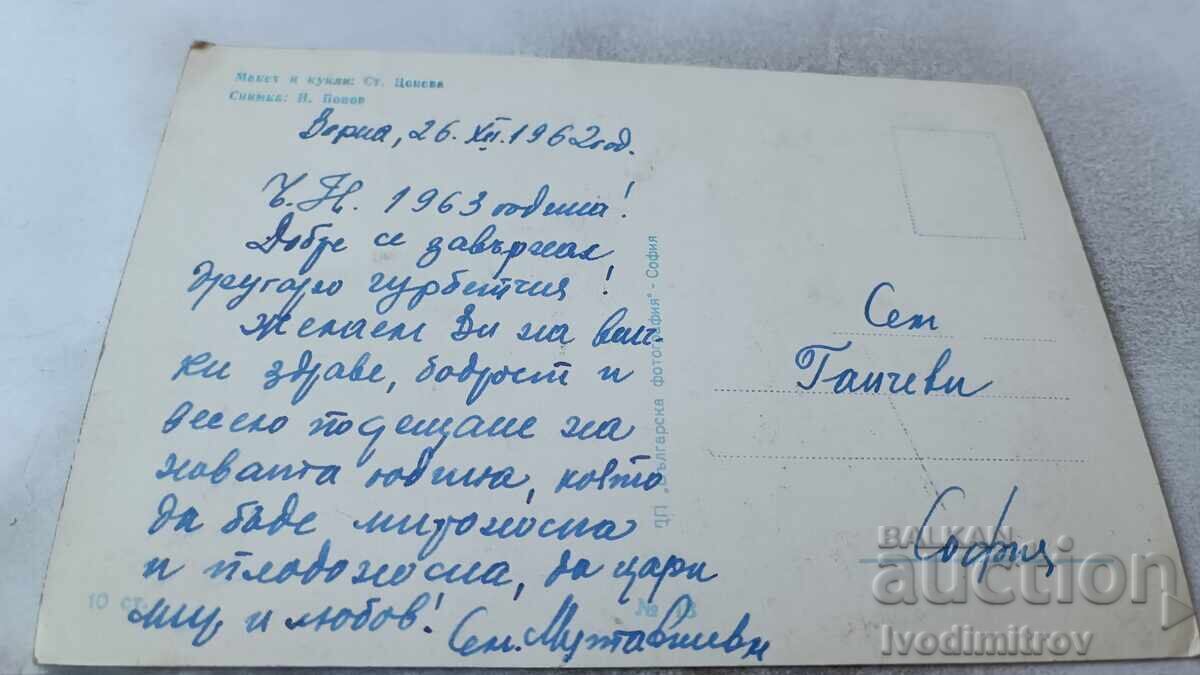 Макет и кукли: Ст. Цонева
Снимка: Н. Попов
Варна, 26.XII.1962 год.
Ч.Н. 1963 година!
Добре се завърнал,
другарю гурбетчия!
Желаем Ви на всич-
ки здраве, бодрост и
весело посрещане на
новата година, която
да бъде мироносна
и плодоносна, да цари
мир и любов!
Сем. Мутавчиеви
10 ст.
№ 13
ДП „Българска фотография" - София
Сем
Ганчеви
София
BALKAN
auction
Ivodimitrov